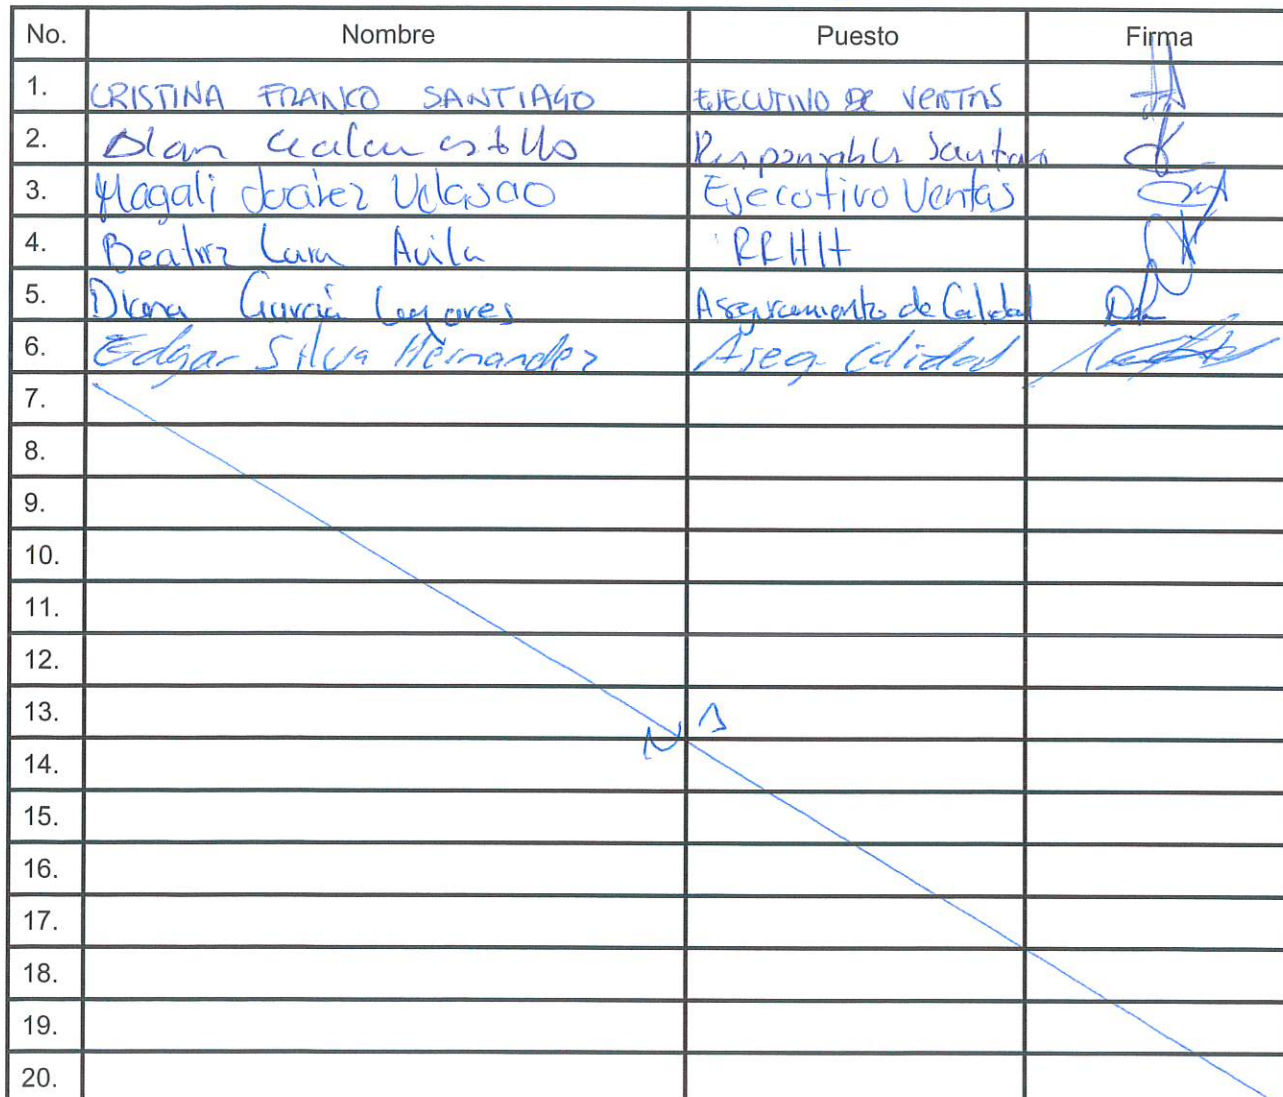 No. Nombre Puesto Firma
1. CRISTINA FRANCO SANTIAGO EJECUTIVO DE VENTAS
2. Responsable Sanitario
3. Magali Juárez Velasco Ejecutivo Ventas
4. Beatriz Lara Avila RRHH
5. Diana García Aseguramiento de Calidad
6. Edgar Silva Hernandez Aseg. Calidad
7.
8.
9.
10.
11.
12.
13.
N A
14.
15.
16.
17.
18.
19.
20.